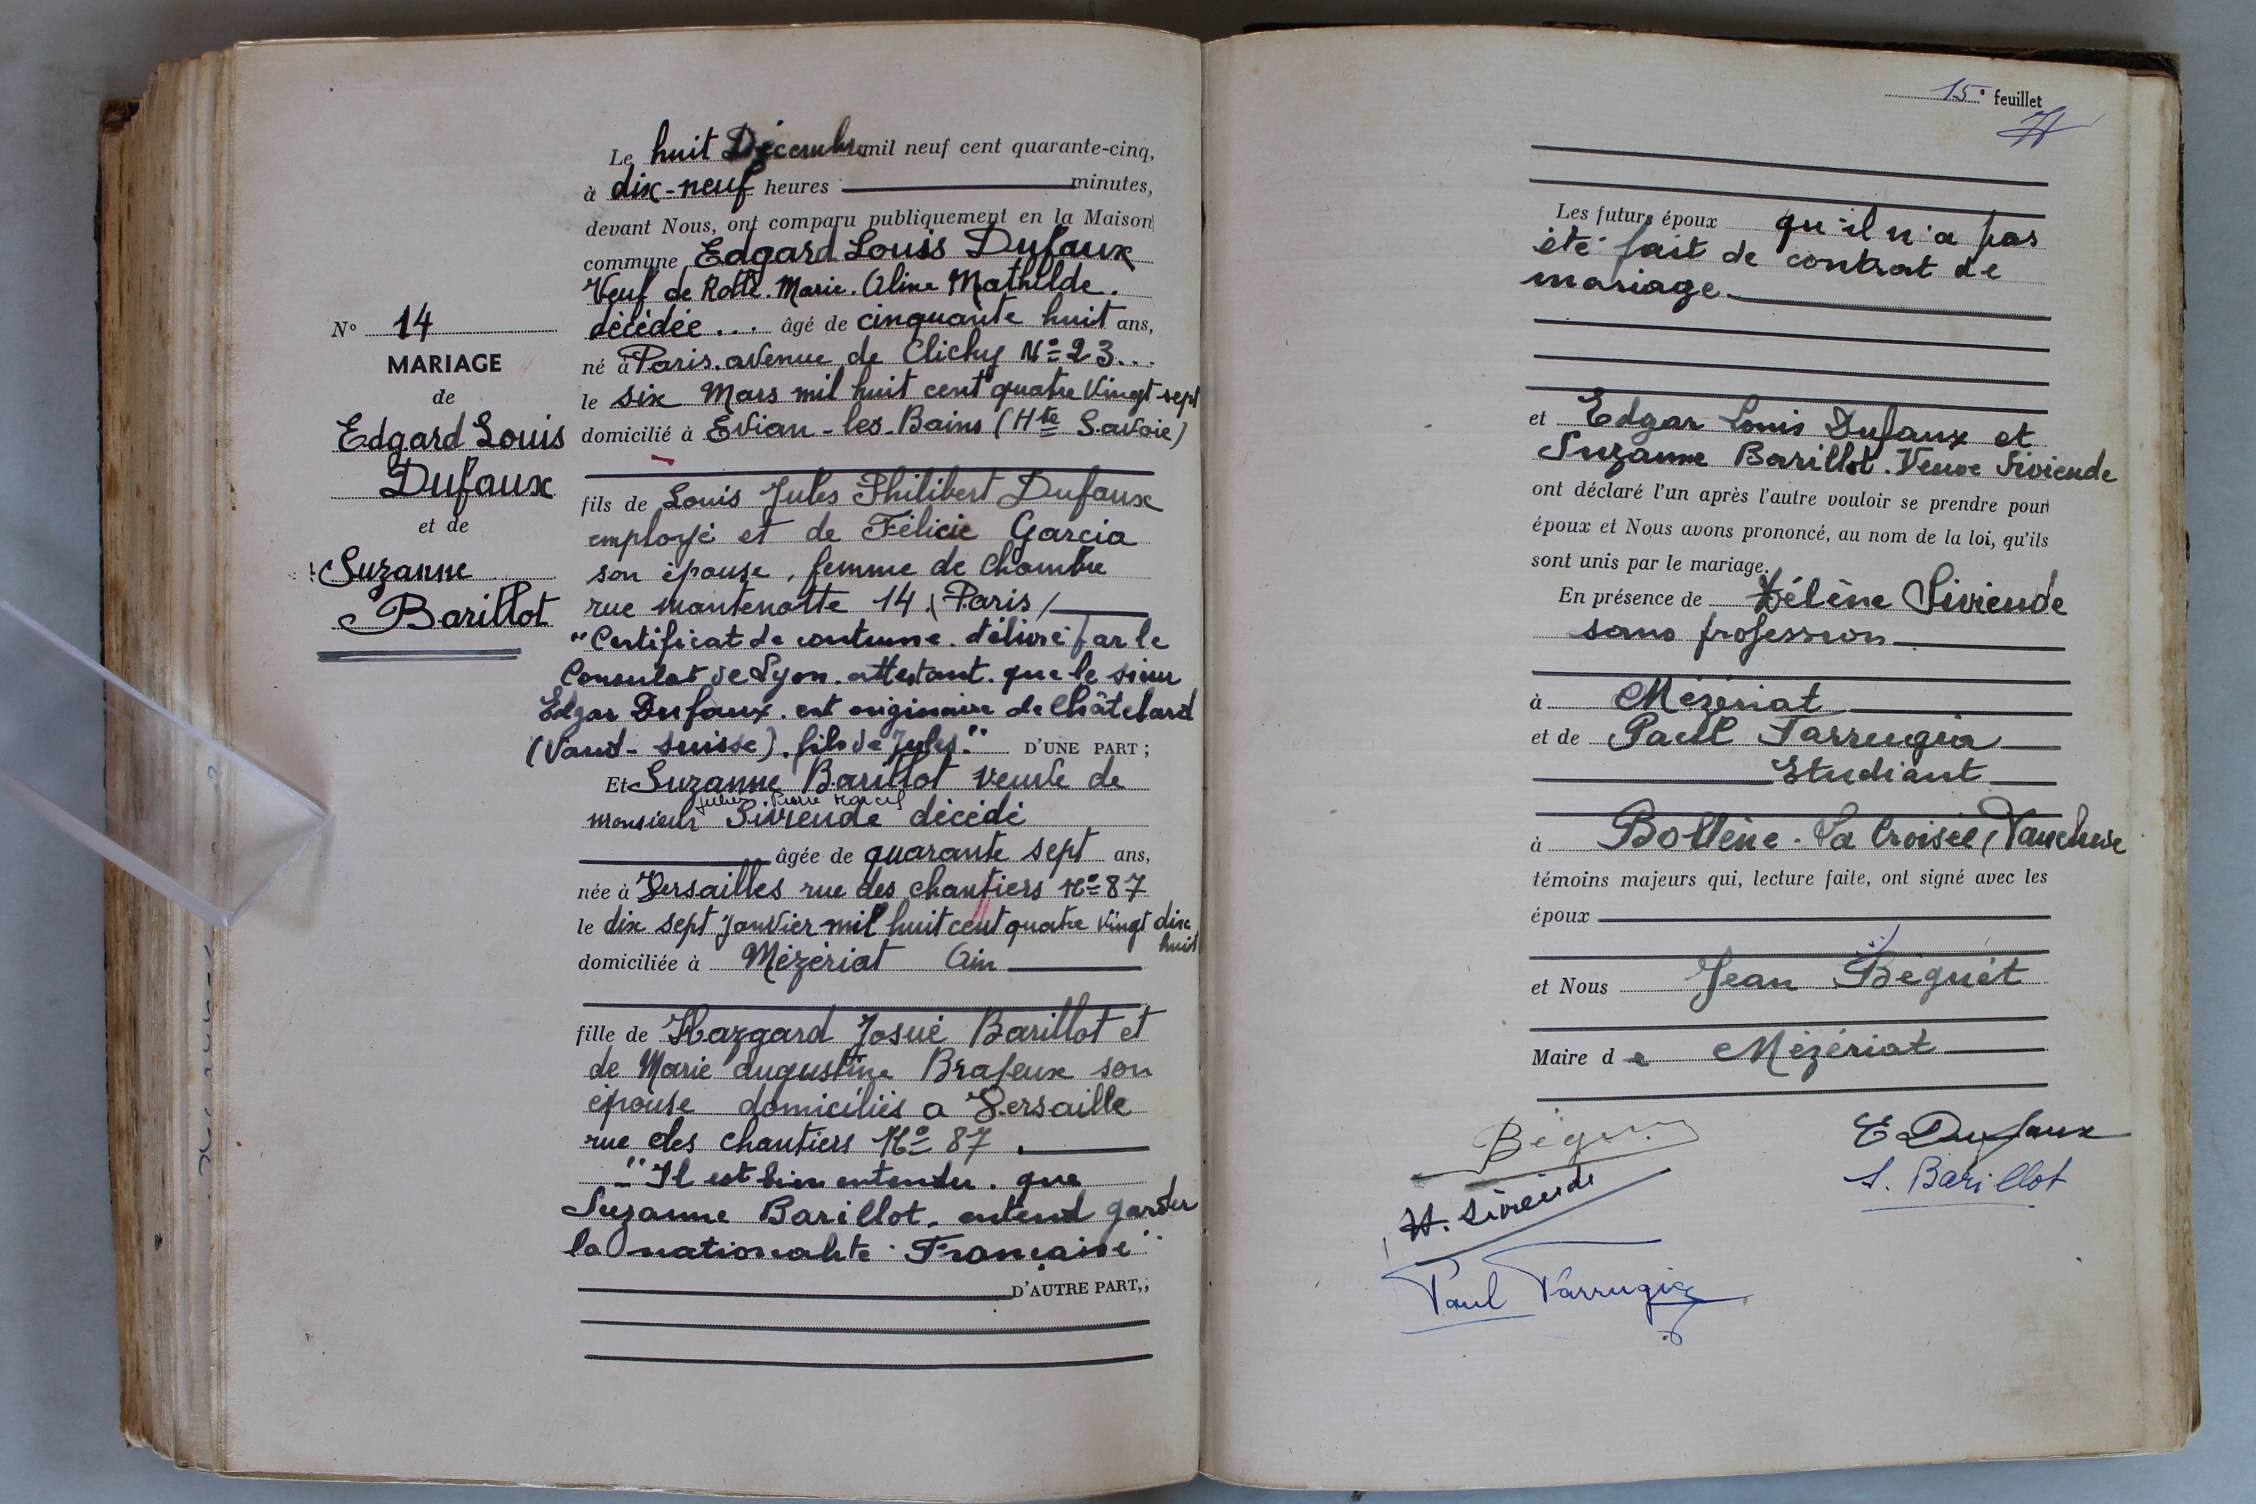 Le huit Décembre mil neuf cent quarante-cinq,
à dix-neuf heures minutes,
devant Nous, ont comparu publiquement en la Maison
commune Edgard Louis Dufaux
Veuf de Rotte. Marie. Aline Mathilde.
décédée... âgé de cinquante huit ans,
né à Paris. avenue de Clichy No 23...
le six Mars mil huit cent quatre Vingt sept
domicilié à Evian-les-Bains (Hte Savoie)
N° 14
MARIAGE
de
Edgard Louis
Dufaux
et de
Suzanne
Barillot
fils de Louis Jules Philibert Dufaux
employé et de Félicie Garcia
son épouse, femme de chambre
rue montenotte 14 (Paris)
"Certificat de coutume. délivré par le
Consulat de Lyon. attestant. que le sieur
Edgar Dufaux. est originaire de Châtelard
(Vaud-Suisse). fils de Jules." D'UNE PART ;
Et Suzanne Barillot veuve de
Julien Pierre Marcel
monsieur Sivieude décédé
âgée de quarante sept ans,
née à Versailles rue des chantiers No 87
le dix sept Janvier mil huit cent quatre Vingt dix
huit
domiciliée à Mézériat Ain
fille de Hazgard Josué Barillot et
de Marie augustine Brafeux son
épouse domiciliés a Versaille
rue des chantiers No 87.
"Il est bien entendu. que
Suzanne Barillot. entend garder
la nationalité Française"
D'AUTRE PART,;
15e feuillet
Les futurs époux qu'il n'a pas
été fait de contrat de
mariage
et Edgar Louis Dufaux et
Suzanne Barillot. Veuve Sivieude
ont déclaré l'un après l'autre vouloir se prendre pour
époux et Nous avons prononcé, au nom de la loi, qu'ils
sont unis par le mariage.
En présence de Hélène Sivieude
sans profession
à Mézériat
et de Paul Farrugia
Etudiant
à Bollène. La Croisée (Vaucluse
témoins majeurs qui, lecture faite, ont signé avec les
époux
et Nous Jean Béguet
Maire de Mézériat
E Dufaux
S. Barillot
H. Sivieude
Paul Farrugia